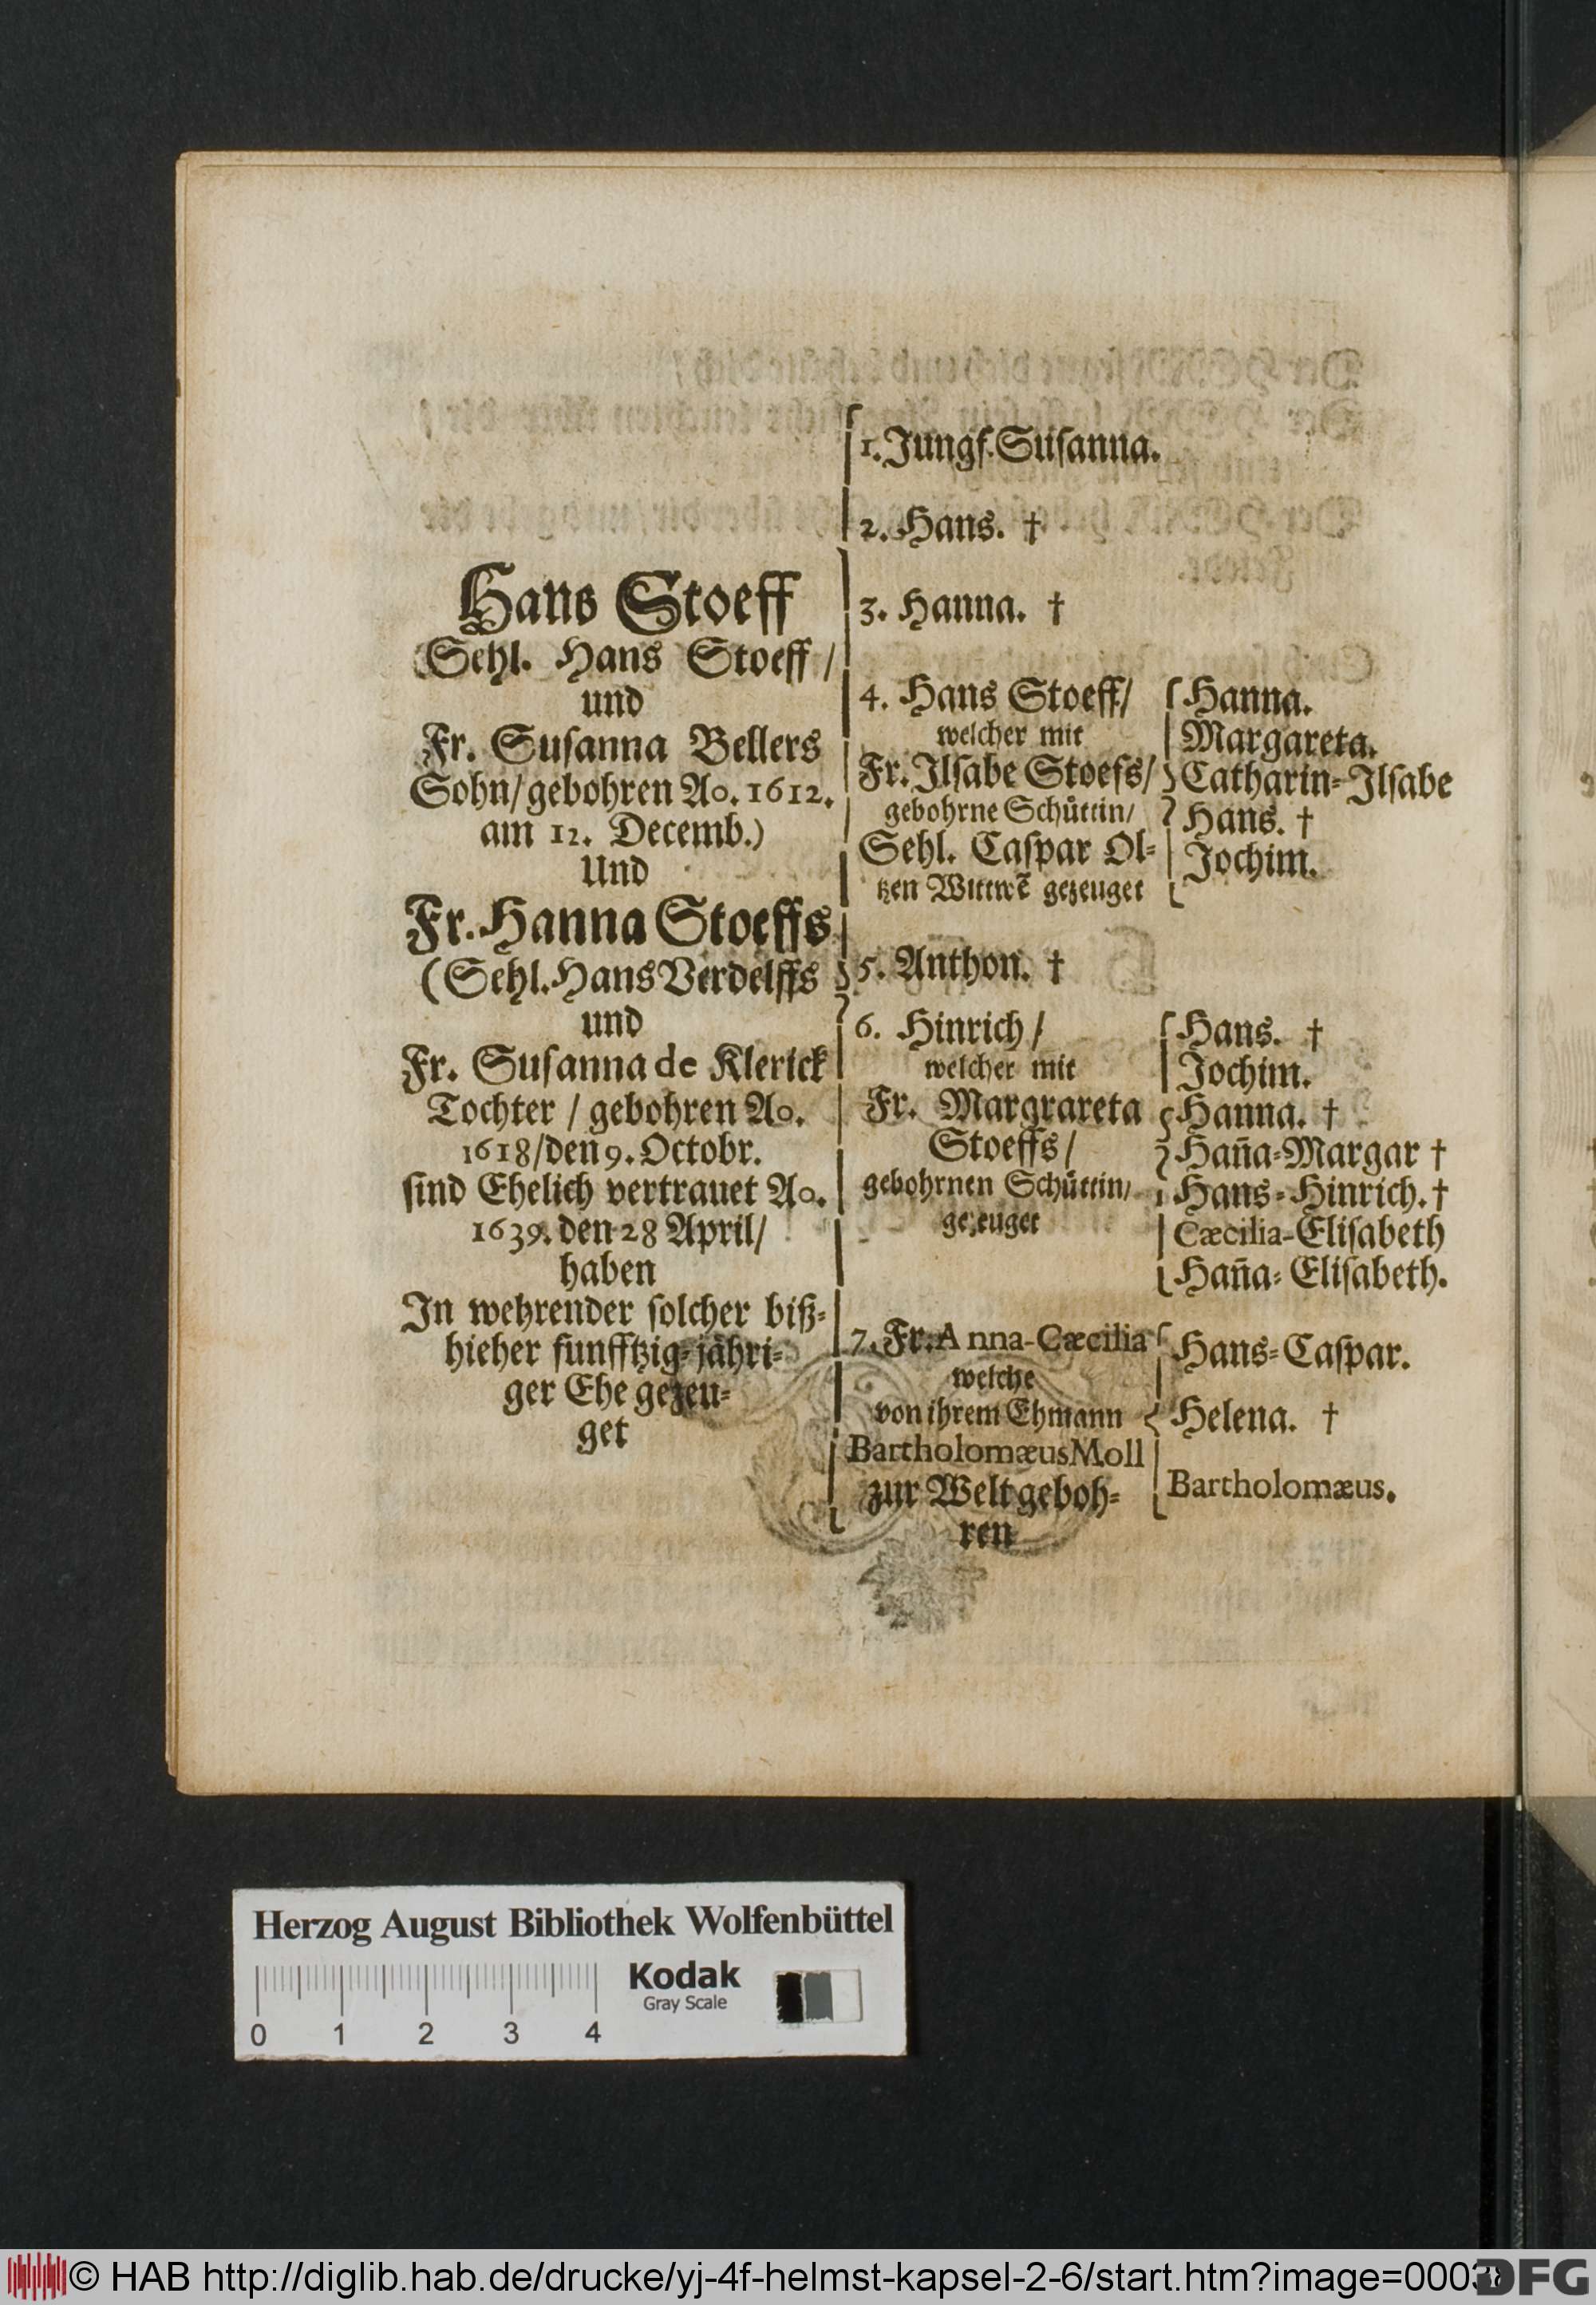 Hans Stoeff
(Sehl. Hans Stoeff /
und
Fr. Susanna Bellers
Sohn/ gebohren Ao. 1612.
am 12. Decemb.)
Und
Fr. Hanna Stoeffs
(Sehl. Hans Verdelffs
und
Fr. Susanna de Klerick
Tochter / gebohren Ao.
1618/ den 9. Octobr.
sind Ehelich vertrauet Ao.
1639. den 28 April/
haben
In wehrender solcher biß-
hieher funfftzig-jähri-
ger Ehe gezeu-
get
1. Jungf. Susanna.
2. Hans. †
3. Hanna. †
4. Hans Stoeff/
welcher mit
Fr. Ilsabe Stoefs/
gebohrne Schüttin/
Sehl. Caspar Ol-
tzen Wittwẽ gezeuget
Hanna.
Margareta.
Catharin-Ilsabe
Hans. †
Jochim.
5. Anthon. †
6. Hinrich /
welcher mit
Fr. Margrareta
Stoeffs /
gebohrnen Schüttin/
gezeuget
Hans. †
Jochim.
Hanna. †
Han̄a-Margar †
Hans-Hinrich. †
Cæcilia-Elisabeth
Han̄a-Elisabeth.
7. Fr. Anna-Cæcilia
welche
von ihrem Ehmann
Bartholomæus Moll
zur Welt geboh-
ren
Hans-Caspar.
Helena. †
Bartholomæus.
Herzog August Bibliothek Wolfenbüttel
Kodak
Gray Scale
0 1 2 3 4
© HAB http://diglib.hab.de/drucke/yj-4f-helmst-kapsel-2-6/start.htm?image=0003
DFG